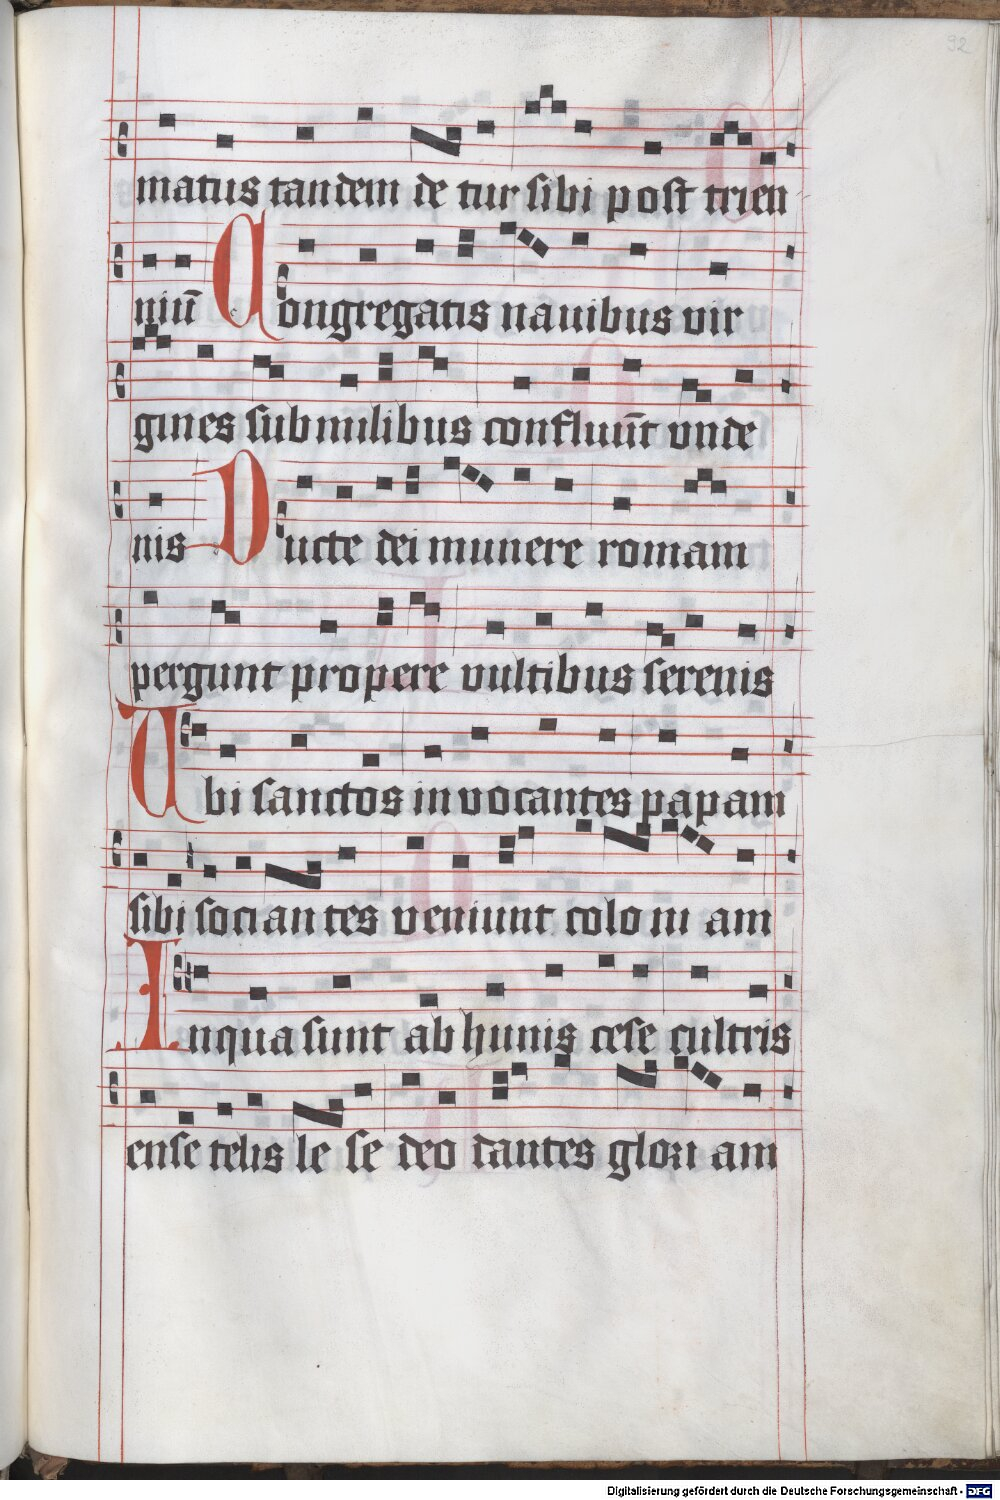 92
matus tandem de tur sibi post trien
niū Congregatis nauibus vir
gines sub milibus confluūt vnde
nis Ducte dei munere romam
pergunt propere vultibus serenis
Vbi sanctos inuocantes papam
sibi sociantes veniunt coloniam
In qua sunt ab hunis cese cultris
ense telis le se deo dantes gloriam
Digitalisierung gefördert durch die Deutsche Forschungsgemeinschaft - DFG